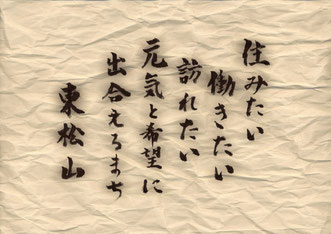 住みたい
働きたい
訪れたい
元気と希望に
出合えるまち
東松山